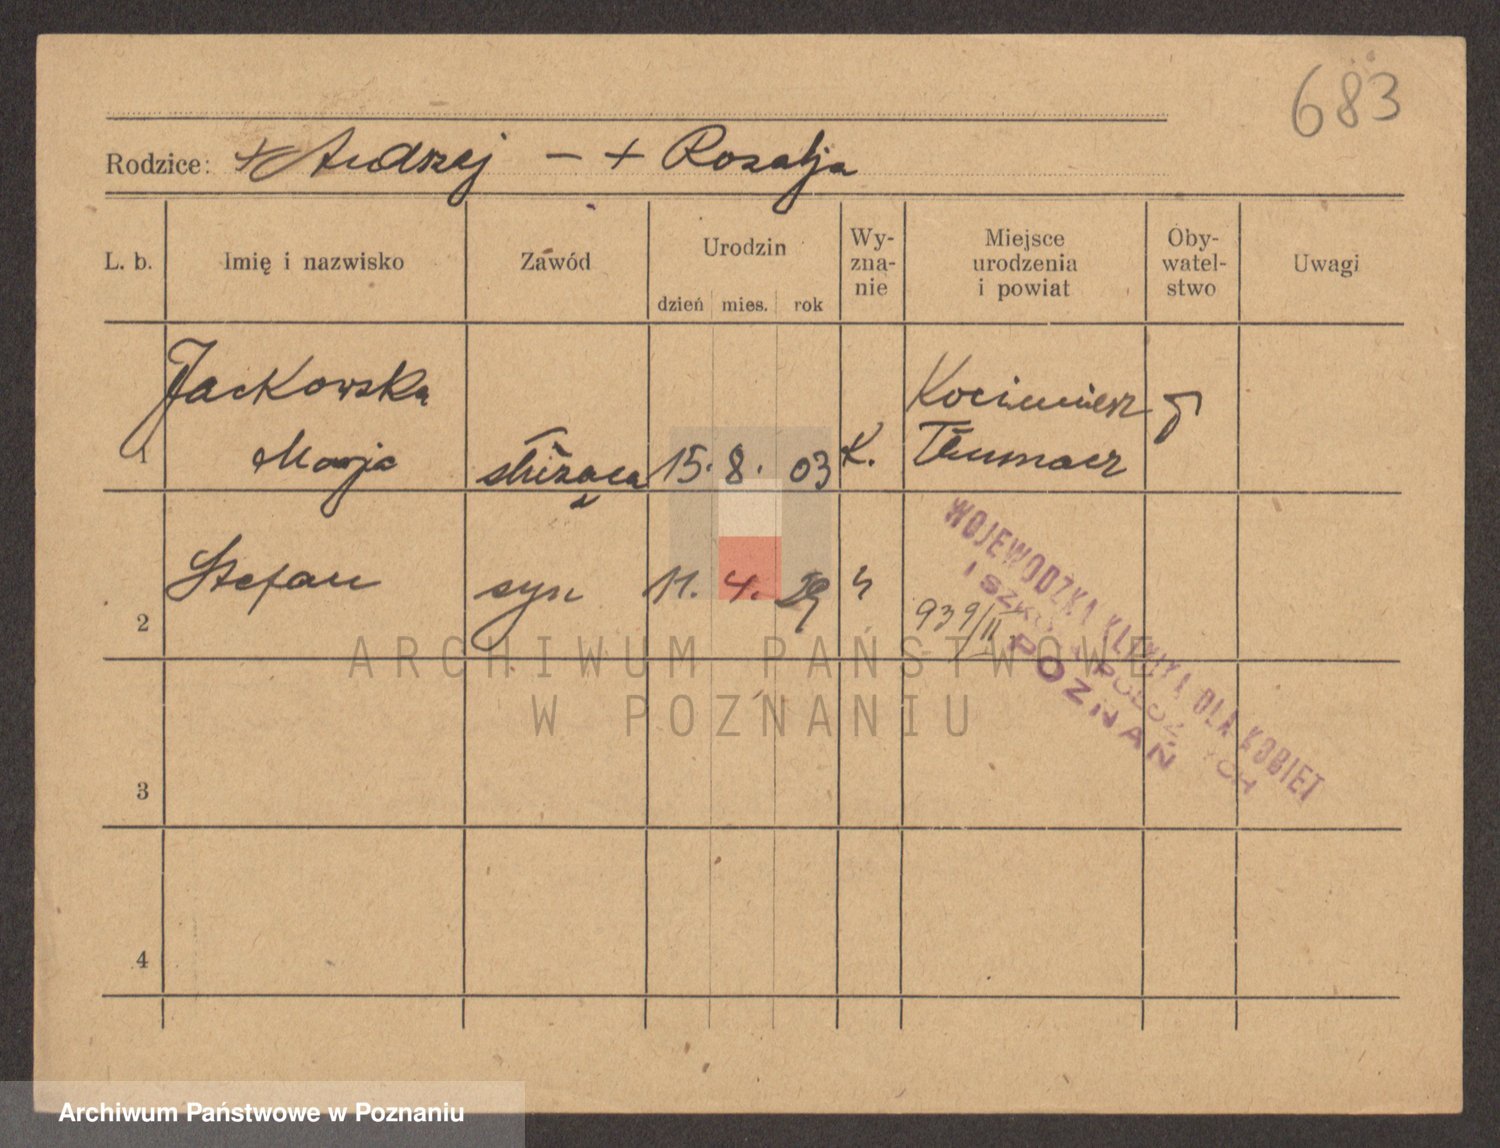 683
Rodzice: + Andrzej – + Rozalja
L. b. Imię i nazwisko Zawód Urodzin dzień mies. rok Wy-zna-nie Miejsce urodzenia i powiat Oby-watel-stwo Uwagi
Jackowska Kocimierz
1 Marja służąca 15. 8. 03 K. Tłumacz
2 Stefan syn 11. 4. 29
939/II
WOJEWÓDZKA KLINIKA DLA KOBIET
I SZKOŁA POŁOŻNYCH
POZNAŃ
3
4
ARCHIWUM PAŃSTWOWE
W POZNANIU
Archiwum Państwowe w Poznaniu